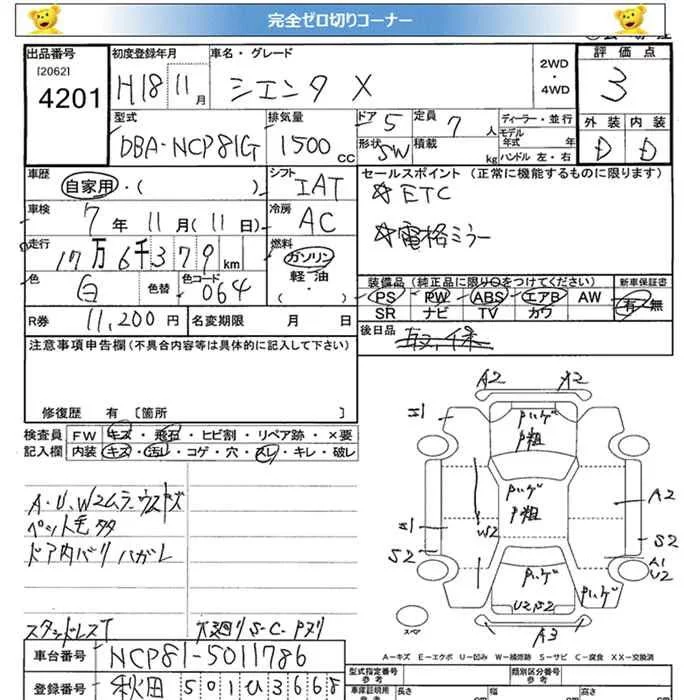 完全ゼロ切りコーナー
出品番号 初度登録年月 車名・グレード 評価点
[2062]
4201 H18 11月 シエンタ X 2WD・4WD 3
型式 排気量 ドア 5 定員 7人 ディーラー・並行 外装 内装
DBA-NCP81G 1500cc 形状 SW 積載 kg モデル年式 年 ハンドル 左・右 D D
車歴 自家用・( ) シフト IAT セールスポイント (正常に機能するものに限ります)
☆ETC
車検 7年11月(11日) 冷房 AC
☆電格ミラー
走行 17万6千379km 燃料 ガソリン 軽油・( )
色 白 色替 色コード 064
装備品 (純正品に限り○をつけてください) 新車保証書
PS PW ABS エアB AW 有・無
SR ナビ TV カワ
R券 11,200円 名変期限 月 日 後日品 取、保
注意事項申告欄(不具合内容等は具体的に記入して下さい)
修復歴 有 [箇所 ]
検査員 FW キズ・飛石・ヒビ割・リペア跡・×要
記入欄 内装 キズ・汚レ・コゲ・穴・スレ・キレ・破レ
A・U、W2ムラ、ウスキズ
ペット毛
ドア内バリ ハガレ
スタッドレスT 下廻りS-C-Pヌリ
A2 X2
Pハゲ
P粗
Pハゲ
P粗
W2
A2
S2
S2
A1
U2
Pハゲ
U2S2
Pハゲ
A3
スペア
A-キズ E-エクボ U-凹み W-補修跡 S-サビ C-腐食 XX-交換済
車台番号 NCP81-5011786 型式指定番号 類別区分番号
登録番号 秋田 501 ひ 3668 車庫証明用参考 長さ 幅 高さ